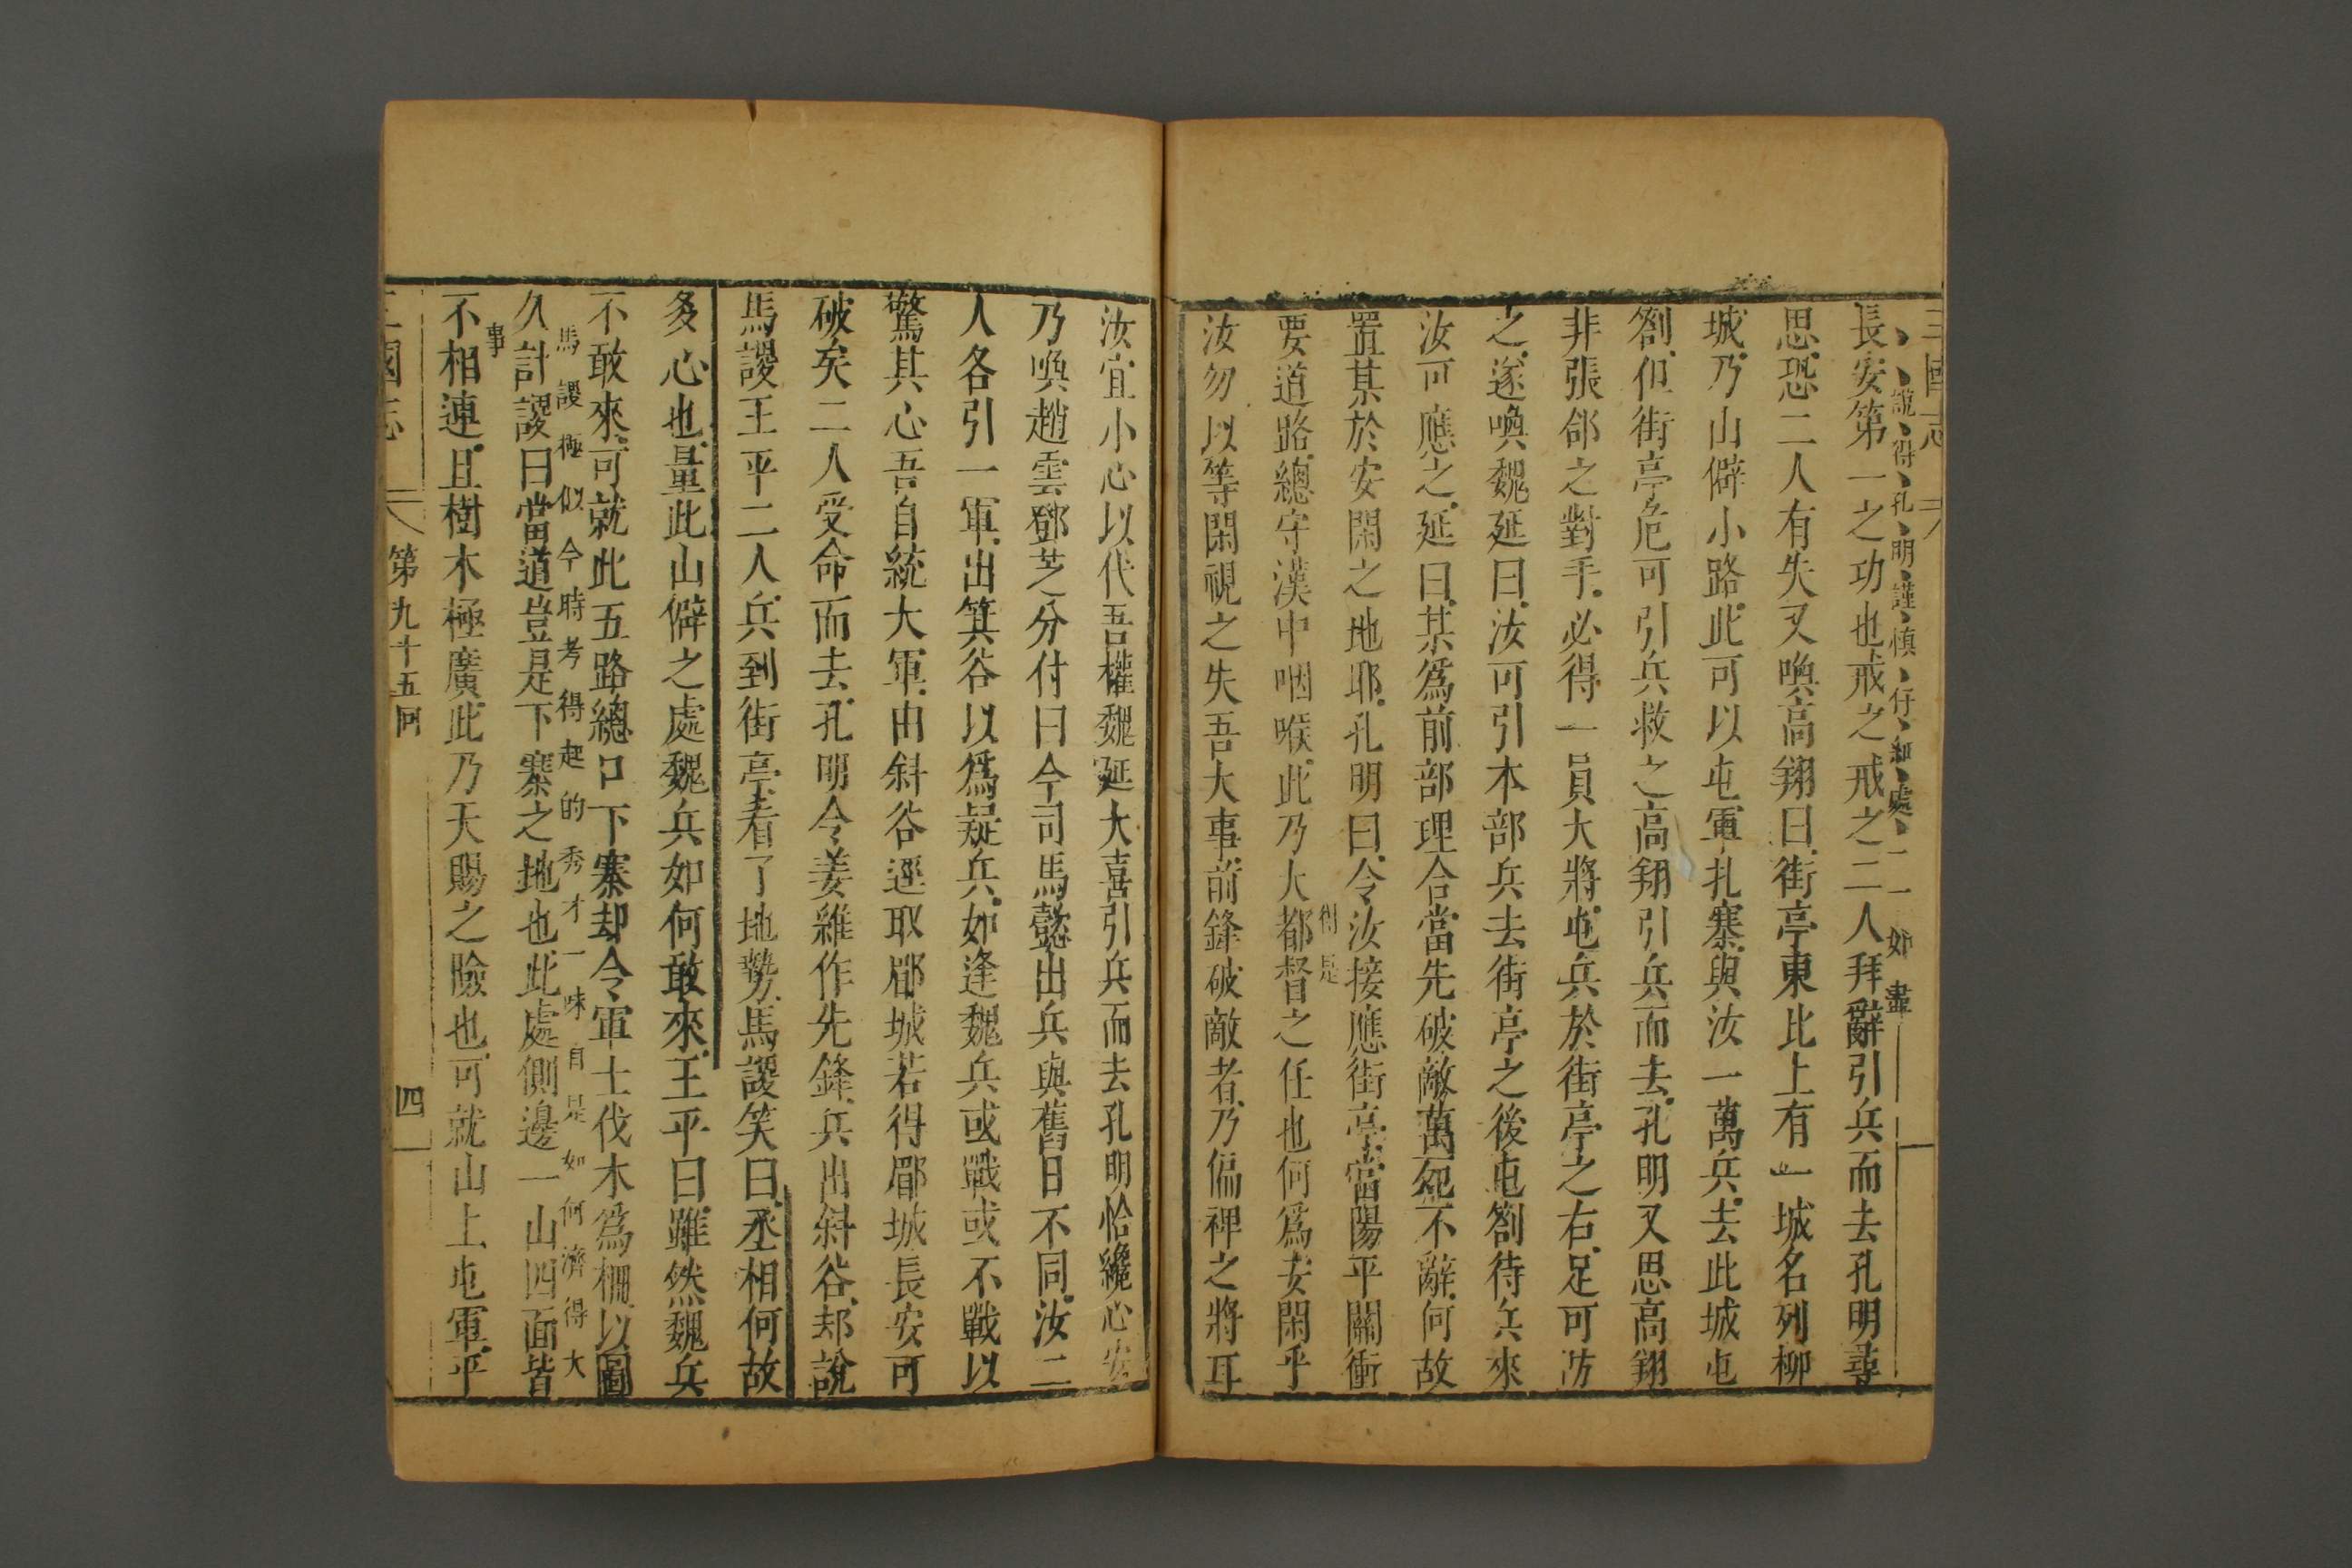 三國志
說得孔明謹慎仔細處一一如畫
長安第一之功也戒之戒之二人拜辭引兵而去孔明尋
思恐二人有失又喚高翔曰街亭東北上有一城名列柳
城乃山僻小路此可以屯軍扎寨與汝一萬兵去此城屯
劄但街亭危可引兵救之高翔引兵而去孔明又思高翔
非張郃之對手必得一員大將屯兵於街亭之右足可防
之遂喚魏延曰汝可引本部兵去街亭之後屯劄待兵來
汝可應之延曰某爲前部理合當先破敵萬死不辭何故
置某於安閑之地耶孔明曰令汝接應街亭當陽平關衝
要道路總守漢中咽喉此乃大都督之任也何爲安閑乎
汝勿以等閑視之失吾大事前鋒破敵者乃偏裨之將耳
汝宜小心以代吾權魏延大喜引兵而去孔明恰纔心安
乃喚趙雲鄧芝分付曰今司馬懿出兵與舊日不同汝二
人各引一軍出箕谷以爲疑兵如逢魏兵或戰或不戰以
驚其心吾自統大軍由斜谷逕取郿城若得郿城長安可
破矣二人受命而去孔明令姜維作先鋒兵出斜谷却說
馬謖王平二人兵到街亭看了地勢馬謖笑曰丞相何故
多心也量此山僻之處魏兵如何敢來王平曰雖然魏兵
不敢來可就此五路總口下寨却令軍士伐木爲柵以圖
馬謖極似今時考得起的秀才一味自是如何濟得大
事
久計謖曰當道豈是下寨之地也此處側邊一山四面皆
不相連且樹木極廣此乃天賜之險也可就山上屯軍平
三國志
第九十五回
四